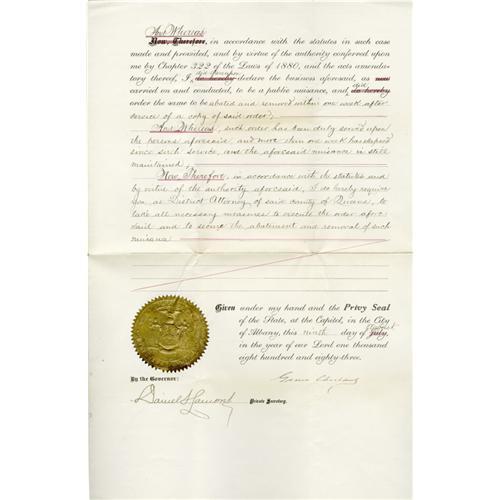 And Whereas
Now, Therefore, in accordance with the statutes in such case
made and provided, and by virtue of the authority conferred upon
me by Chapter 322 of the Laws of 1880, and the acts amenda-
tory thereof, I, did thereupon
do hereby declare the business aforesaid, as
carried on and conducted, to be a public nuisance, and, did
do hereby
order the same to be abated and removed within one week after
service of a copy of said order;
And Whereas, such order has been duly served upon
the persons aforesaid, and more than one week has elapsed
since such service, and the aforesaid nuisance is still
maintained;
Now, Therefore, in accordance with the statutes and
by virtue of the authority aforesaid, I do hereby require
you as District Attorney of said county of Queens, to
take all necessary measures to execute the order afore-
said and to secure the abatement and removal of such
nuisance
Given under my hand and the Privy Seal
of the State, at the Capitol, in the City
of Albany, this ninth day of July,
in the year of our Lord one thousand
eight hundred and eighty-three.
Grover Cleveland
By the Governor:
Daniel S Lamont
Private Secretary.